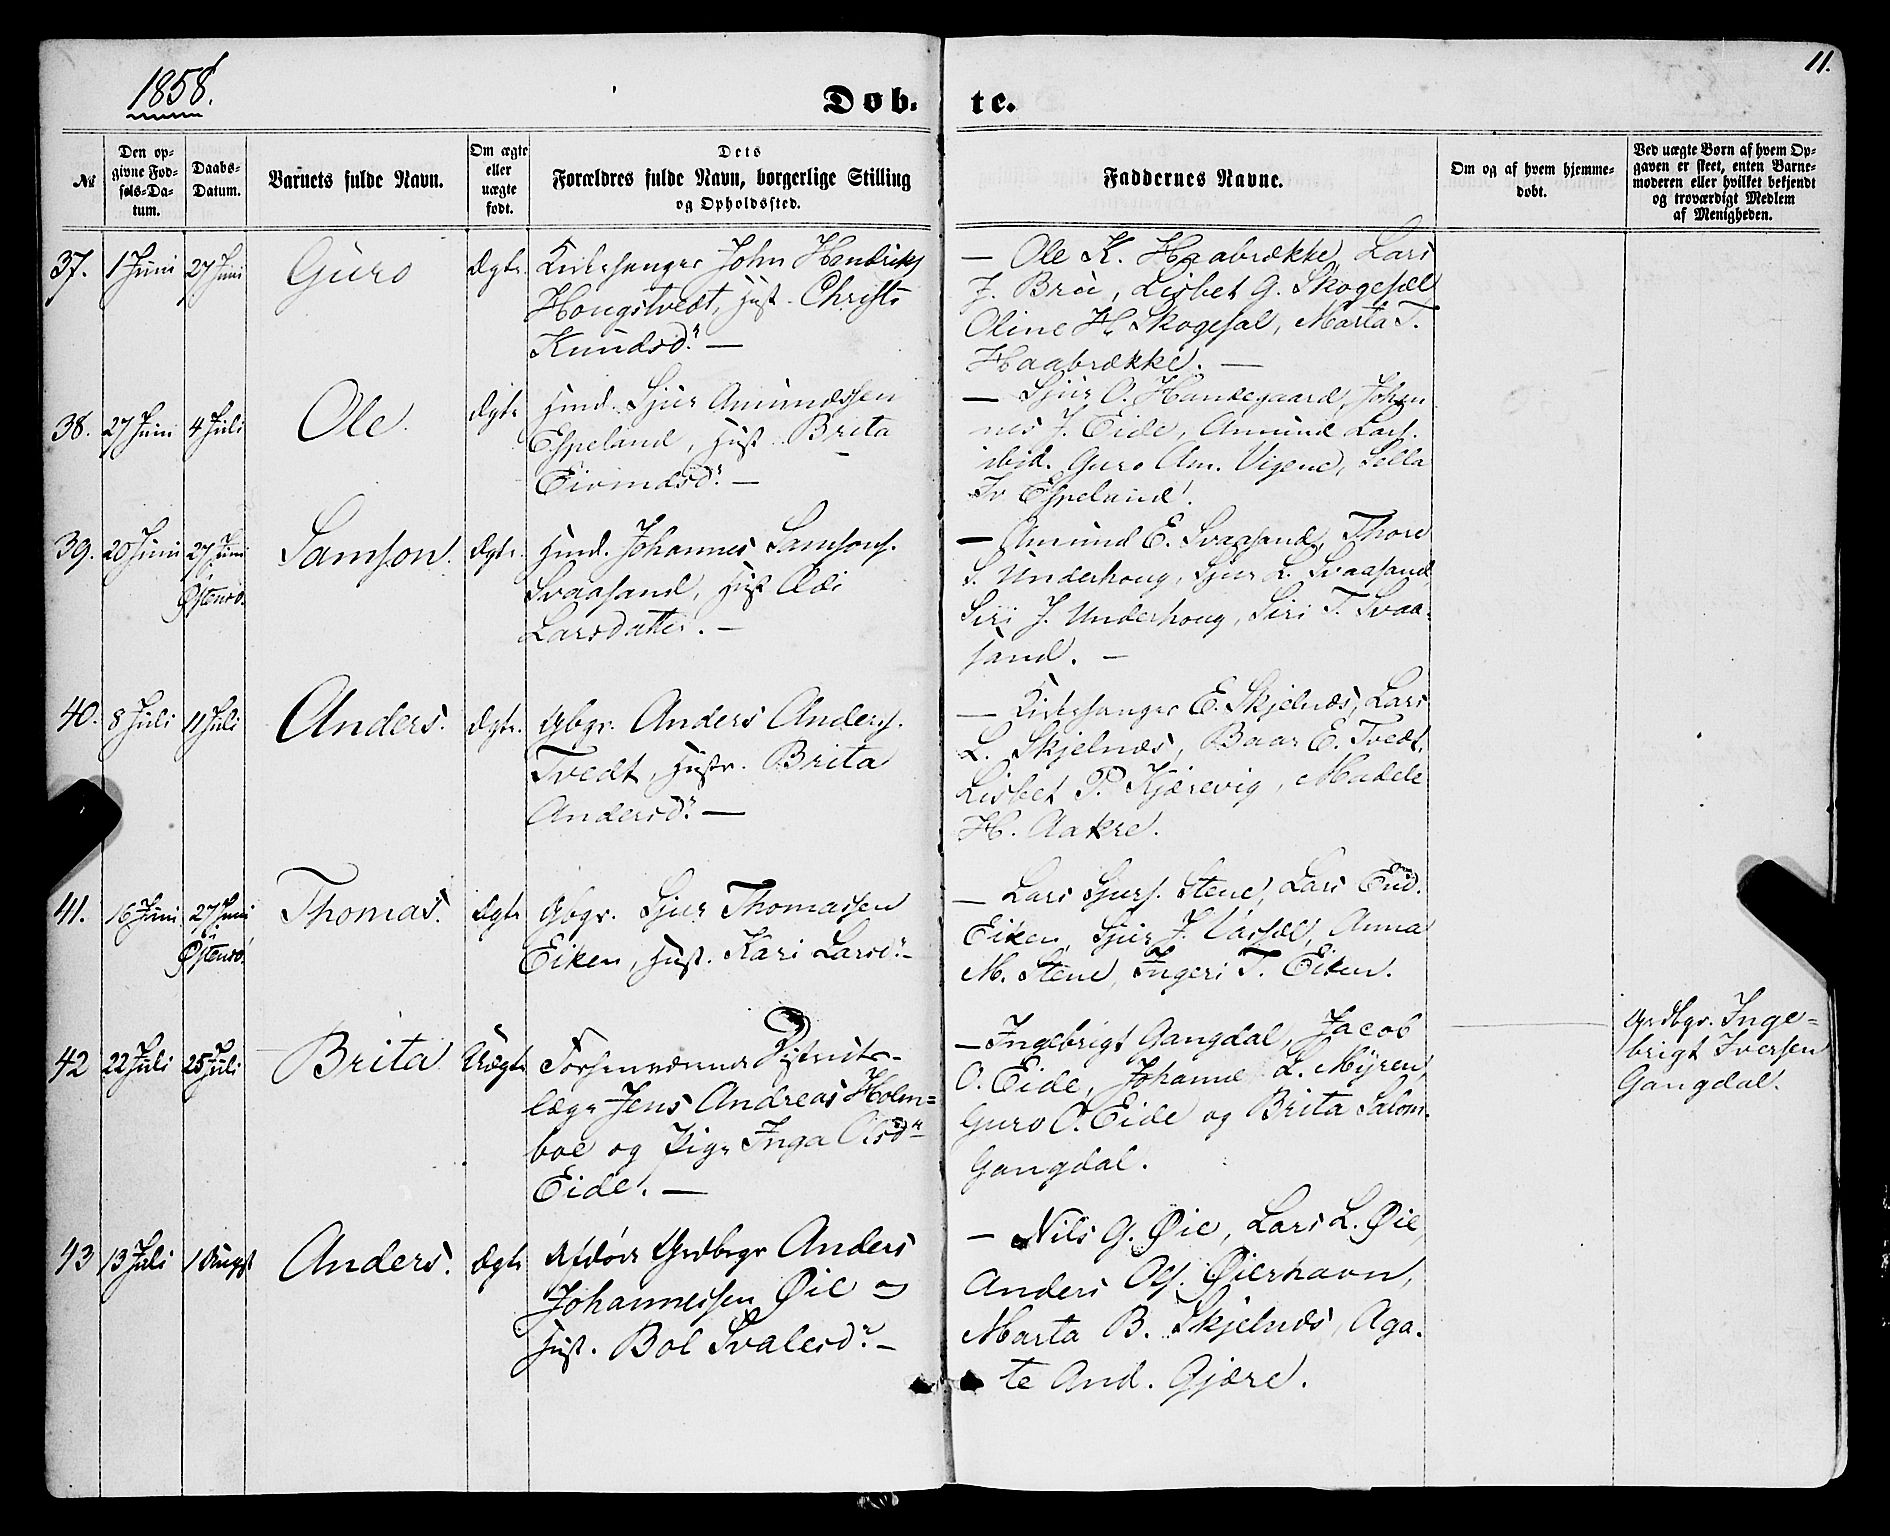 1858.
11.
Døb-
te.
No
Den op-
givne Fød-
sels-Da-
tum.
Daabs-
Datum.
Barnets fulde Navn.
Om ægte
eller
uægte
født.
Dets
Forældres fulde Navn, borgerlige Stilling
og Opholdssted.
Faddernes Navne.
Om og af hvem hjemme-
døbt.
Ved uægte Børn af hvem Op-
gaven er skeet, enten Barne-
moderen eller hvilket bekjendt
og troværdigt Medlem
af Menigheden.
37. 1 Juni 27 Juni Guro Ægte. Kirkesanger John Hendriks
Hougstvedt, Hust. Christi
Knudsdr. —
— Ole K. Haabrække, Lars
J. Bru, Lisbet G. Skogesæl
Oline H. Skogesal, Marta T.
Haabrække. —
38. 27 Juni 4 Juli Ole. Ægte Hmd. Sjur Amundssen
Espeland, Hust. Brita
Eivindsdr. —
— Sjur O. Handegaard, Johan
nes J. Eide, Amund Lars.
ibid. Guro Am. Vigene, Sella
Iv Espeland.
39. 20 Juni 27 Juni
i
Østensø. Samson. Ægte. Hmd. Johannes Samsons.
Svaasand, Hust Adi
Larsdatter. —
— Amund E. Svaasand, Thore
S. Underhoug, Sjur L. Svaasand
Siri J. Underhoug, Siri T. Svaa-
sand. —
40. 8 Juli 11 Juli Anders. Ægte. Gbgr. Anders Anders.
Tvedt, Hustr. Brita
Andersdr. —
— Kirkesanger E. Skjelnæs, Lars
L. Skjelnæs, Baar E. Tvedt,
Lisbet P. Kjærevig, Madele
H. Aakre.
41. 16 Juni 27 Juni
i
Østensø. Thomas. Ægte Gbgr. Sjur Thomassen
Eiken, Hust. Kari Larsdr. —
— Lars Sjurs. Stene, Lars End.
Eiken, Sjur J. Vassel, Anna
M. Stene, Ingeri T. Eiken.
42 22 Juli 25 Juli Brita Uægte Forhenværende Distrikts-
læge Jens Andreas Holm=
boe og Pige Inga Olsdr
Eide. —
— Ingebrigt Gangdal, Jacob
O. Eide, Johanne L. Myren,
Guro O. Eide og Brita Salom.
Gangdal.
Grdbgr. Inge=
brigt Iversen
Gangdal.
43 13 Juli 1 August Anders. Ægte Afdøde Grdbrgr Anders
Johannessen Øie og
Hust. Bol Svalesdr. —
— Nils G. Øie, Lars L. Øie
Anders Ols. Øierhavn,
Marta B. Skjelnæs, Aga-
te And. Gjære.